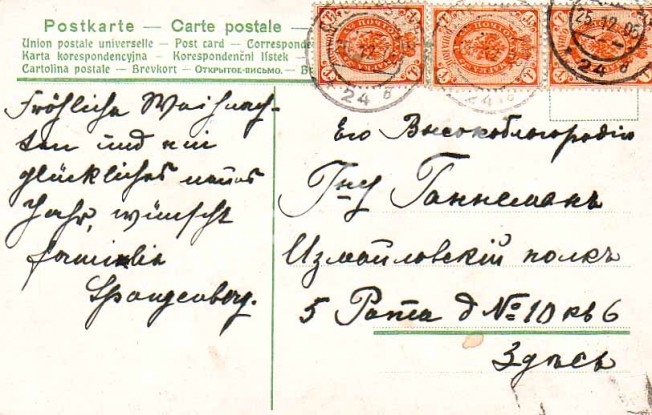 Postkarte — Carte postale —
Union postale universelle – Post card – Correspond
Karta korespondencyjna – Korespondenční lístek
Cartolina postale – Brevkort – Открытое письмо. – B
25.12.05
24
24
24
Fröhliche Weihnach-
ten und ein
glückliches neues
Jahr, wünscht
familie
Spangenberg.
Его Высокоблагородію
Гну Ганнеманъ
Измайловскій полкъ
5 Рота д № 10 кв 6
Здѣсь